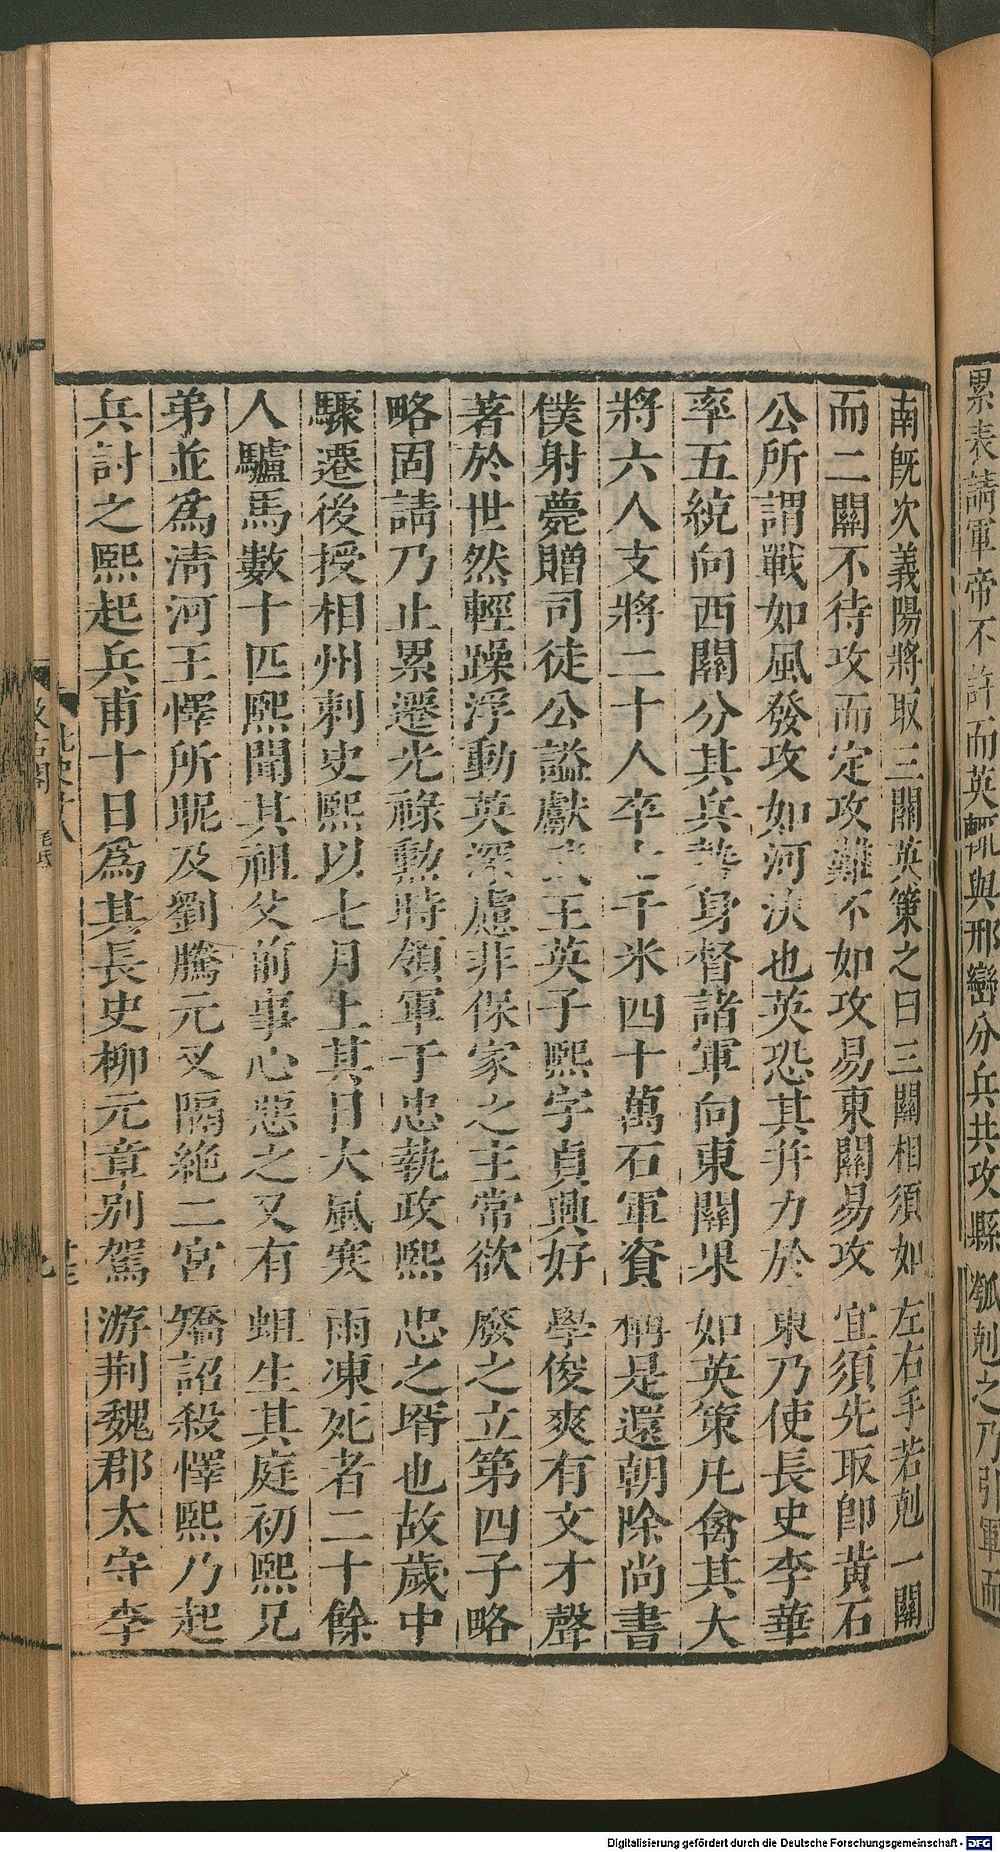 累表請軍帝不許而英輒與邢巒分兵共攻縣瓠剋之乃引軍而
南旣次義陽將取三關英策之曰三關相須如左右手若剋一關
而二關不待攻而定攻難不如攻易東關易攻宜須先取卽黃石
公所謂戰如風發攻如河決也英恐其并力於東乃使長史李華
率五統向西關分其兵勢身督諸軍向東關果如英策凡禽其大
將六人支將二十人卒七千米四十萬石軍資稱是還朝除尚書
僕射薨贈司徒公諡獻武王英子熙字貞興好學俊爽有文才聲
著於世然輕躁浮動英深慮非保家之主常欲廢之立第四子略
略固請乃止累遷光祿勳時領軍于忠執政熙忠之壻也故歲中
驟遷後授相州刺史熙以七月上其日大風寒雨凍死者二十餘
人驢馬數十匹熙聞其祖父前事心惡之又有蛆生其庭初熙兄
弟並爲淸河王懌所昵及劉騰元叉隔絶二宮矯詔殺懌熙乃起
兵討之熙起兵甫十日爲其長史柳元章別駕游荆魏郡太守李
汲古閣
毛氏
Digitalisierung gefördert durch die Deutsche Forschungsgemeinschaft - DFG